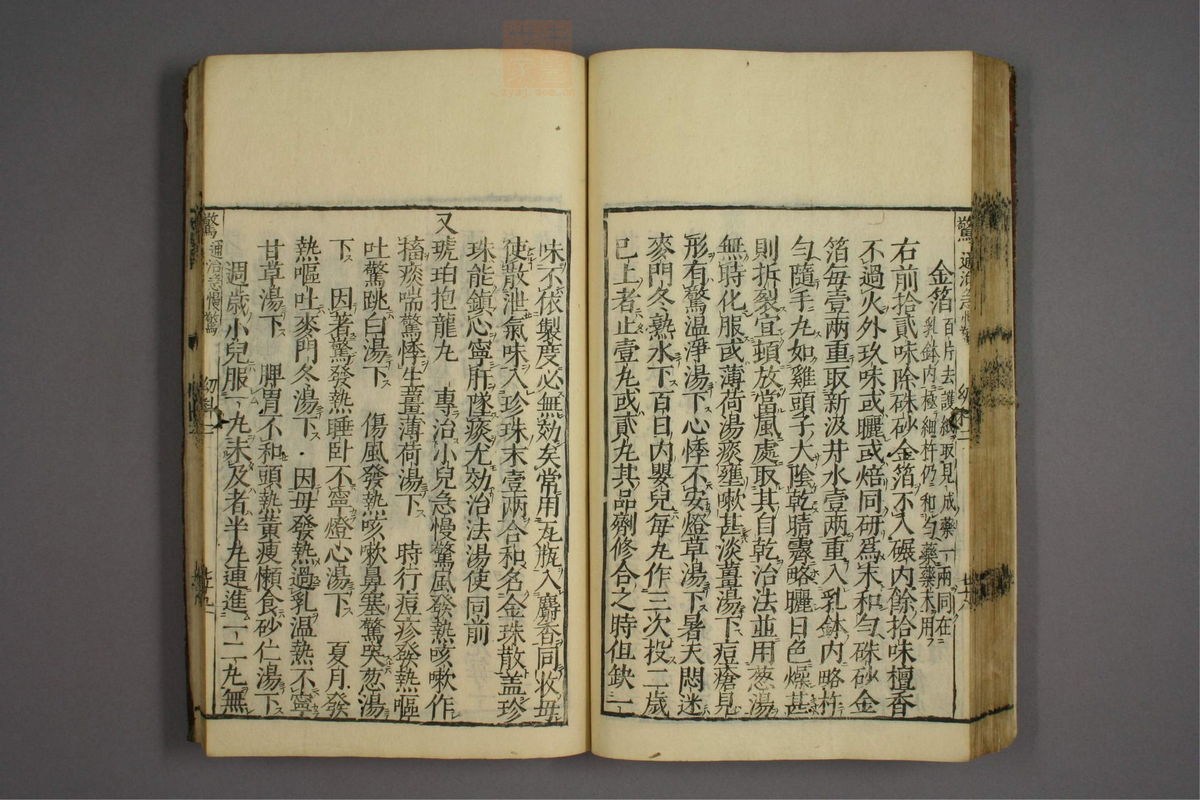 金箔百片去護紙取見成藥一兩同在
乳鉢内極細杵仍和勻藥藥末用
右前拾貳味除硃砂金箔不入碾内餘拾味檀香
不過火外玖味或曬或焙同研爲末和勻硃砂金
箔每壹兩重取新汲井水壹兩重入乳鉢内略杵
勻隨手丸如雞頭子大隂乾晴霽略曬日色燥甚
則拆裂宜頓放當風處取其自乾治法並用葱湯
無時化服或薄荷湯痰壅嗽甚淡薑湯下痘瘡見
形有驚溫淨湯下心悸不安燈草湯下暑天悶迷
麥門冬熟水下百日内嬰兒每丸作三次投二歲
已上者止壹丸或貳丸其品劑修合之時但缺一
味不依製度必無効矣常用瓦瓶入麝香同收毋
使散泄氣味入珍珠末壹兩合和名金珠散盖珍
珠能鎮心寧肝墜痰尤効治法湯使同前
又琥珀抱龍丸 專治小兒急慢驚風發熱咳嗽作
搐痰喘驚悸生薑薄荷湯下 時行痘疹發熱嘔
吐驚跳白湯下 傷風發熱咳嗽鼻塞驚哭葱湯
下 因著驚發熱睡卧不寧燈心湯下 夏月發
熱嘔吐麥門冬湯下 因母發熱過乳温熱不寧
甘草湯下 脾胃不和頭熱黄瘦懶食砂仁湯下
週歲小兒服一丸未及者半丸連進一二丸無
驚 通治急慢驚 幼科 七十五